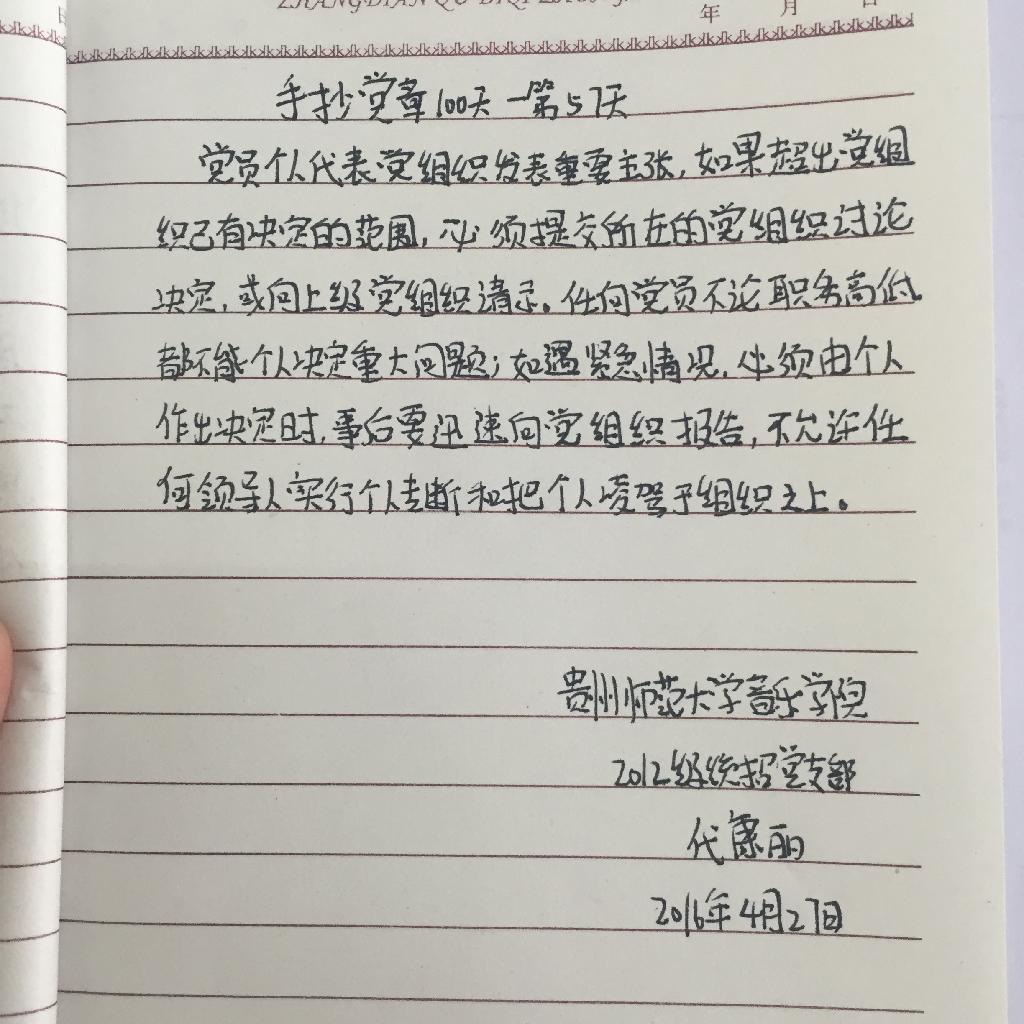 年 月 日
手抄党章100天—第57天
党员个人代表党组织发表重要主张,如果超出党组
织已有决定的范围,必须提交所在的党组织讨论
决定,或向上级党组织请示。任何党员不论职务高低
都不能个人决定重大问题;如遇紧急情况,必须由个人
作出决定时,事后要迅速向党组织报告,不允许任
何领导人实行个人专断和把个人凌驾于组织之上。
贵州师范大学音乐学院
2012级统招党支部
代康丽
2016年4月27日